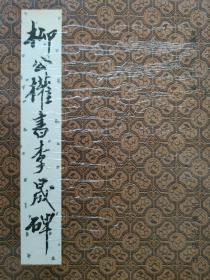 柳公權書李晟碑